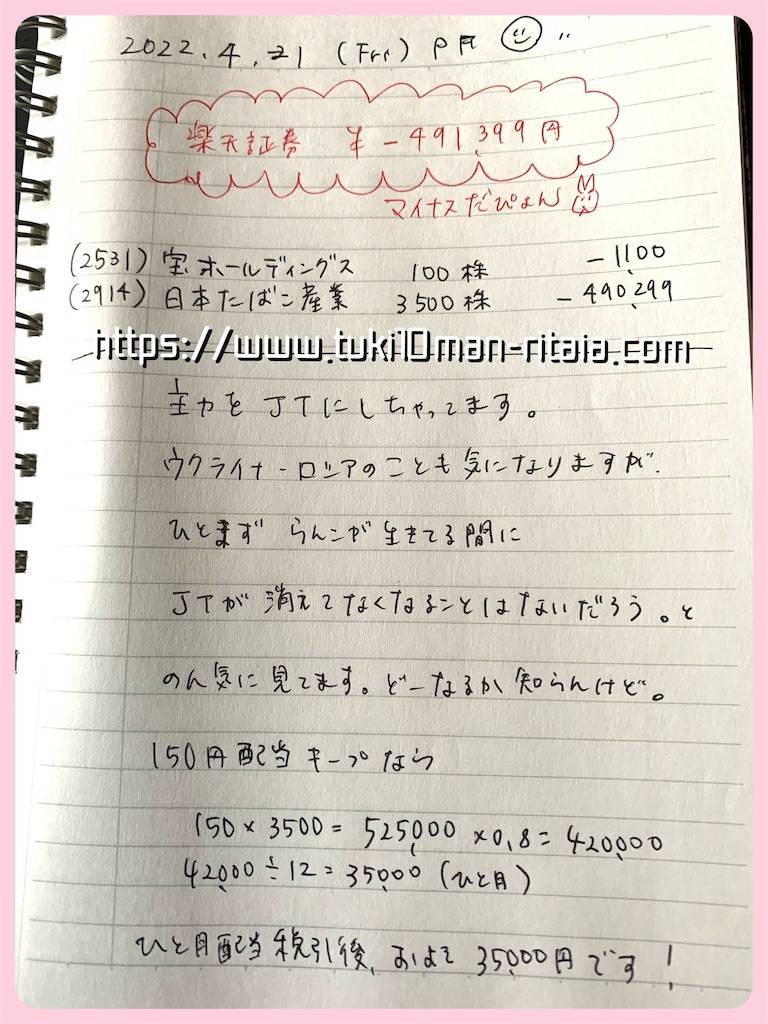 2022.4.21 (Fri) P月
楽天証券 ¥-491,399円
マイナスだぴょん
(2531) 宝ホールディングス 100株 -1,100
(2914) 日本たばこ産業 3500株 -490,299
https://www.tuki10man-ritaia.com
主力をJTにしちゃってます。
ウクライナ-ロシアのことも気になりますが、
ひとまず らんこが生きてる間に
JTが消えてなくなることはないだろう。と
のん気に見てます。どーなるか知らんけど。
150円配当キープなら
150×3500=525,000×0.8=420,000
42,000÷12=35,000(ひと月)
ひと月配当税引後、およそ35,000円です!